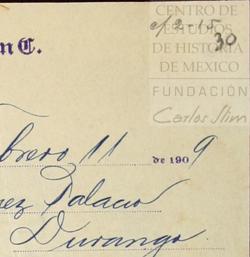 CENTRO DE
ESTUDIOS
DE HISTORIA
DE MEXICO
FUNDACIÓN
Carlos Slim
30
m C.
brero 11 de 1909
ez Palacio
Durango.